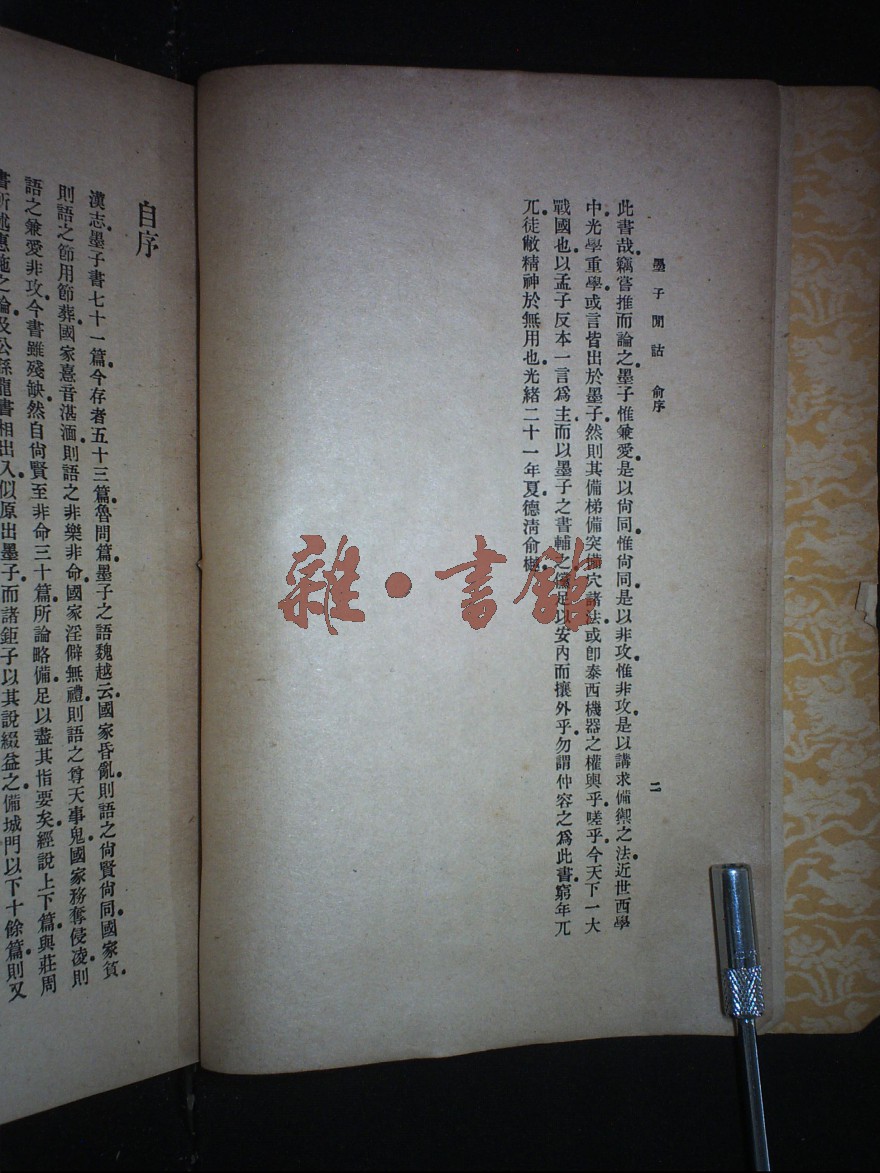 墨子閒詁 俞序
二
此書哉竊嘗推而論之墨子惟兼愛是以尙同惟尙同是以非攻惟非攻是以講求備禦之法近世西學
中光學重學或言皆出於墨子然則其備梯備突備穴諸法或卽泰西機器之權輿乎嗟乎今天下一大
戰國也以孟子反本一言爲主而以墨子之書輔之儻足以安內而攘外乎勿謂仲容之爲此書窮年兀
兀徒敝精神於無用也光緒二十一年夏德淸俞樾
自序
漢志墨子書七十一篇今存者五十三篇魯問篇墨子之語魏越云國家昏亂則語之尙賢尙同國家貧
則語之節用節葬國家憙音湛湎則語之非樂非命國家淫僻無禮則語之尊天事鬼國家務奪侵凌則
語之兼愛非攻今書雖殘缺然自尙賢至非命三十篇所論略備足以盡其指要矣經說上下篇與莊周
書所述惠施之論及公孫龍書相出入似原出墨子而諸鉅子以其說綴益之備城門以下十餘篇則又
雜·書館